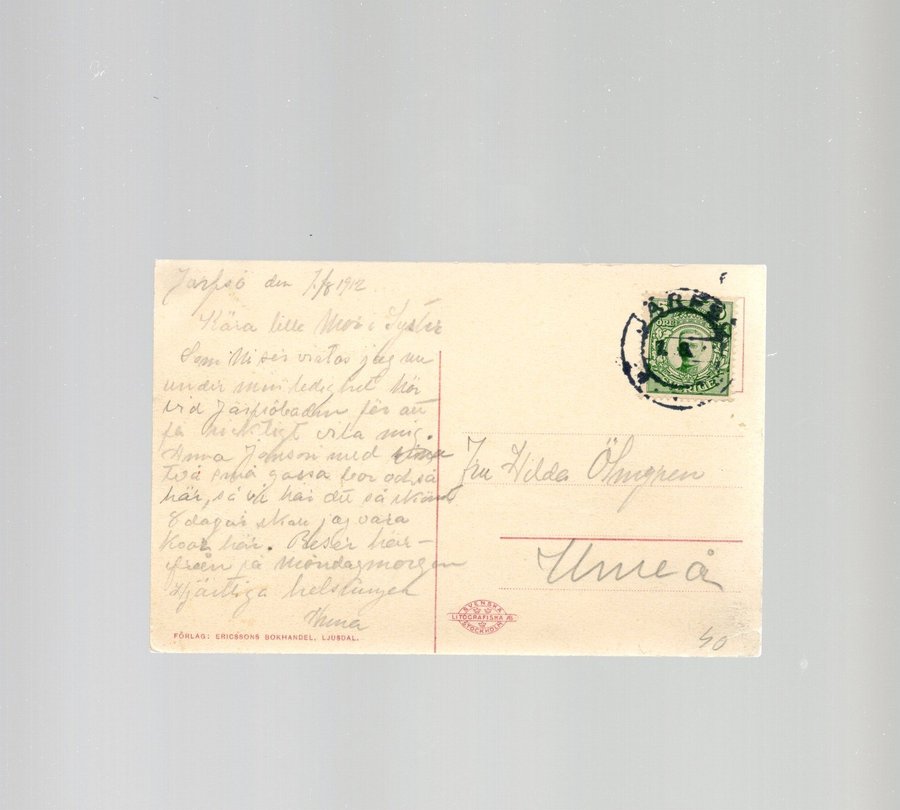 Järfsö den 7/8 1912
Kära lilla Mor o Syster
Som Ni ser vistas jag nu
under min ledighet här
vid Järfsöbaden för att
få riktigt vila mig.
Anna Jonson med
två små gossa bor också
här, så vi har det så skönt
8 dagar skall jag vara
kvar här. Reser här-
ifrån på Måndagmorgon
Hjärtliga helsningar
FÖRLAG: ERICSSONS BOKHANDEL, LJUSDAL.
JÄRFSÖ
Fru Hilda Öhngren
Umeå
SVENSKA
LITOGRAFISKA AB
STOCKHOLM
40